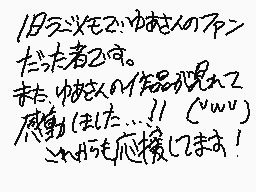 旧うごメモで、ゆあさんのファン
だった者です。
また、ゆあさんの作品が見れて
感動しました…!! (´ωwω`)
これからも応援してます!